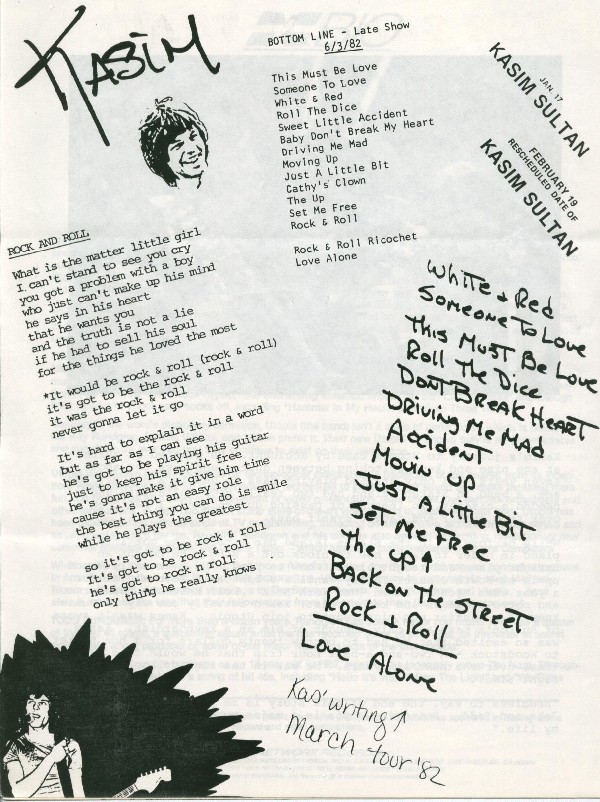 KASIM
BOTTOM LINE - Late Show
6/3/82
This Must Be Love
Someone To Love
White & Red
Roll The Dice
Sweet Little Accident
Baby Don't Break My Heart
Driving Me Mad
Moving Up
Just A Little Bit
Cathy's Clown
The Up
Set Me Free
Rock & Roll
Rock & Roll Ricochet
Love Alone
JAN. 17
KASIM SULTAN
FEBRUARY 19
RESCHEDULED DATE OF
KASIM SULTAN
ROCK AND ROLL
What is the matter little girl
I can't stand to see you cry
you got a problem with a boy
who just can't make up his mind
he says in his heart
that he wants you
and the truth is not a lie
if he had to sell his soul
for the things he loved the most
*It would be rock & roll (rock & roll)
it's got to be the rock & roll
it was the rock & roll
never gonna let it go
It's hard to explain it in a word
but as far as I can see
he's got to be playing his guitar
just to keep his spirit free
he's gonna make it give him time
cause it's not an easy role
the best thing you can do is smile
while he plays the greatest
so it's got to be rock & roll
It's got to be rock & roll
he's got to rock n roll
only thing he really knows
White & Red
Someone To Love
This Must Be Love
Roll The Dice
DONT BREAK HEART
DRIVING Me MAD
Accident
Movin up
JUST A Little Bit
Set Me Free
The up ↑
BACK ON The STREET
Rock & Roll
Love Alone
Kas' writing ↑
March tour '82